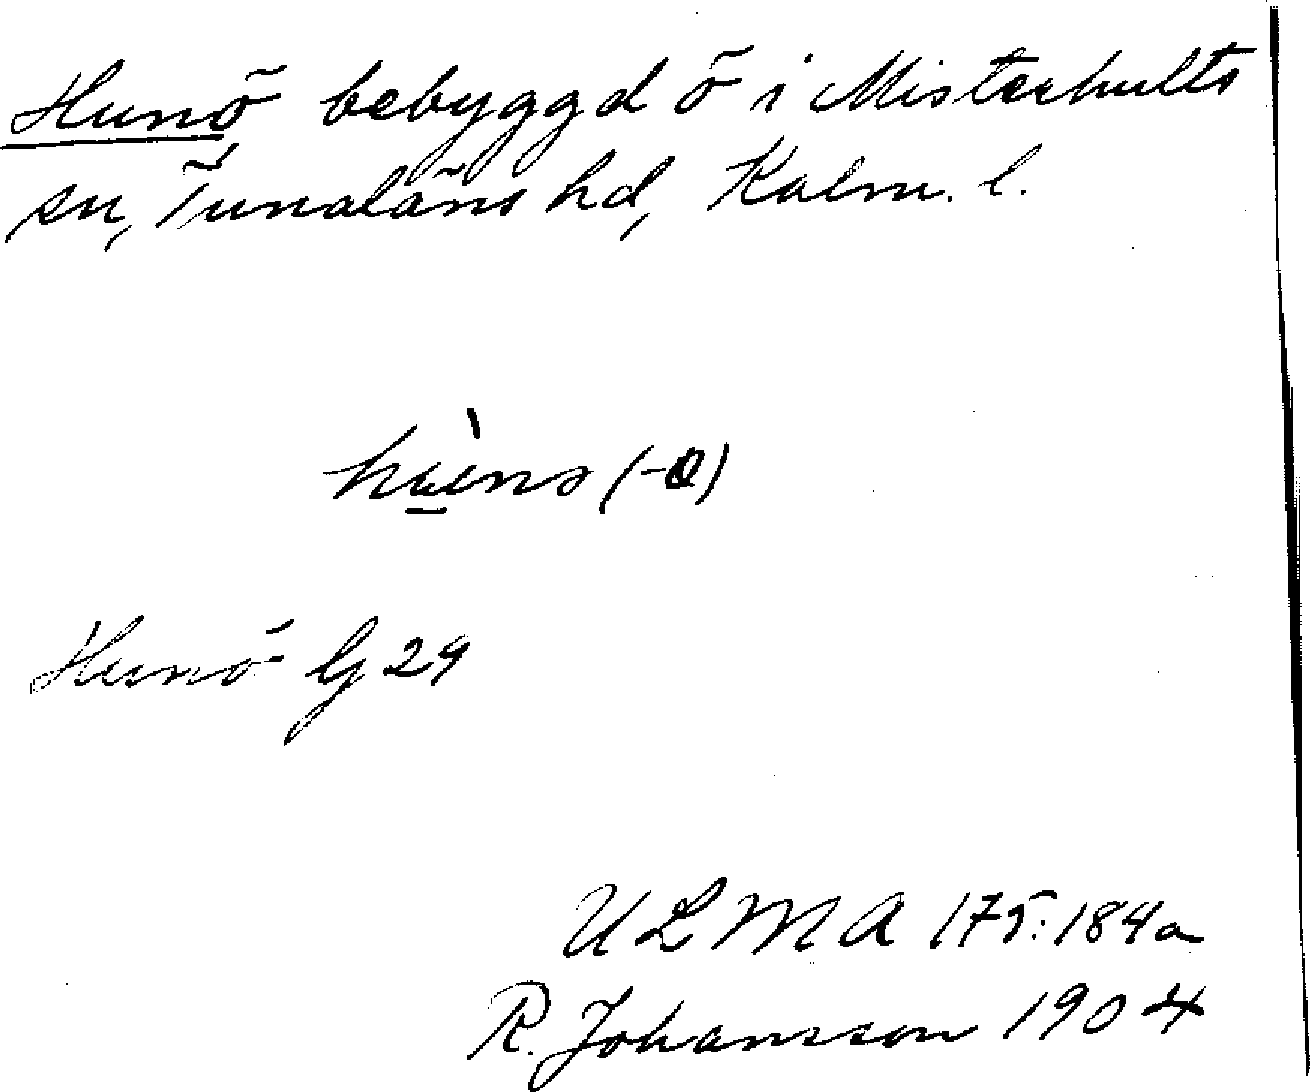 Hunö bebyggd ö i Misterhults
sn, Tunaläns hd, Kalm. l.
Hunö G 29
ULMA 175:184a
R. Johansson 1904